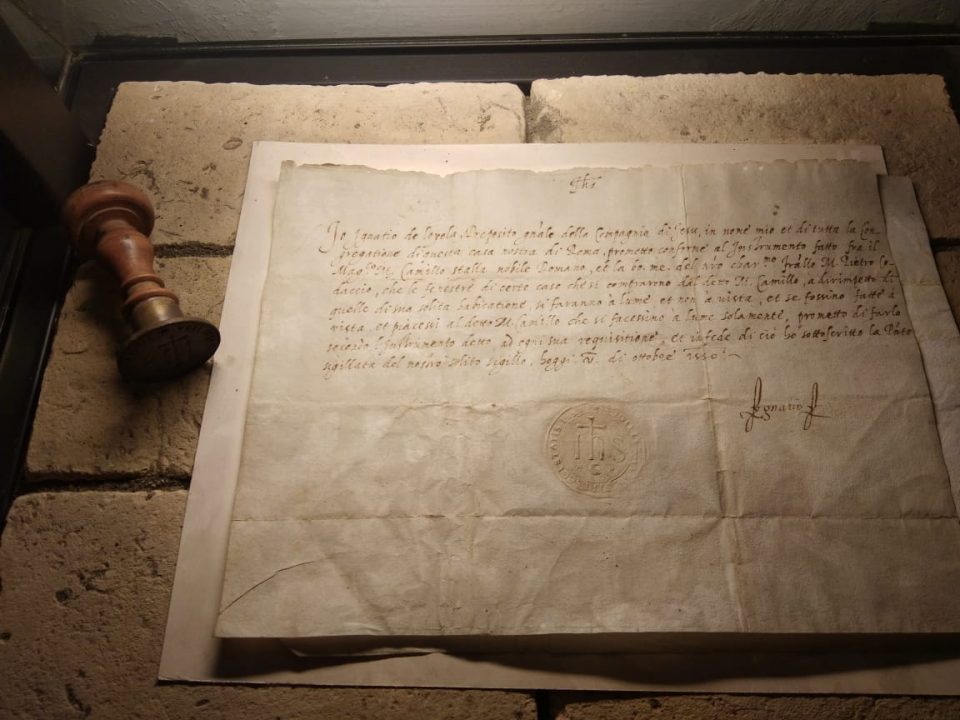 Jhs
Io Ignatio de Loyola Preposito gnale della Compagnia di Jesu, in nome mio et di tutta la Con-
gregatione di questa casa nostra di Roma, prometto conforme al Instrumento fatto fra il
Mag.co M. Camillo Stalla nobile Romano, et la bo. me. del nro char.mo frallo M. Pietro Co-
daccio, che le fenestre di certe case che si comprarono dal detto M. Camillo, a dirimpetto di
quelle di sua solita habitatione, si faranno a lume et non a vista, et se fossino fatte á
vista, et piacesi al detto M. Camillo che si facessino a lume solamente, prometto di farlo
secondo l'Instrumento detto ad ogni sua requisitione, et in fede di ciò ho sottoscritto la
sigillata del nostro solito sigillo, hoggi di ottobre 1550
Ignatio
ihs